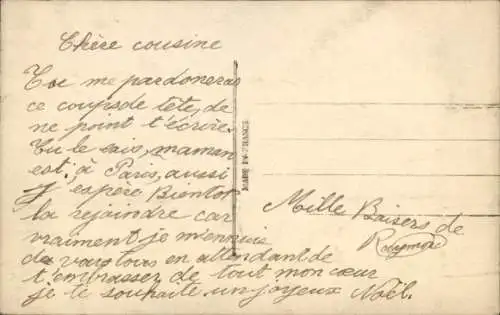 Chère cousine
Tu me pardoneras
ce coups de tête, de
ne point t'écrire.
Tu le sais, maman
est à Paris, aussi
j'espère Bientot
la rejoindre car
vraiment je m'ennuie
de vous tous en attendant de
t'embrasser de tout mon cœur
je te souhaite un joyeux Noël.
MADE IN FRANCE
Mille Baisers de